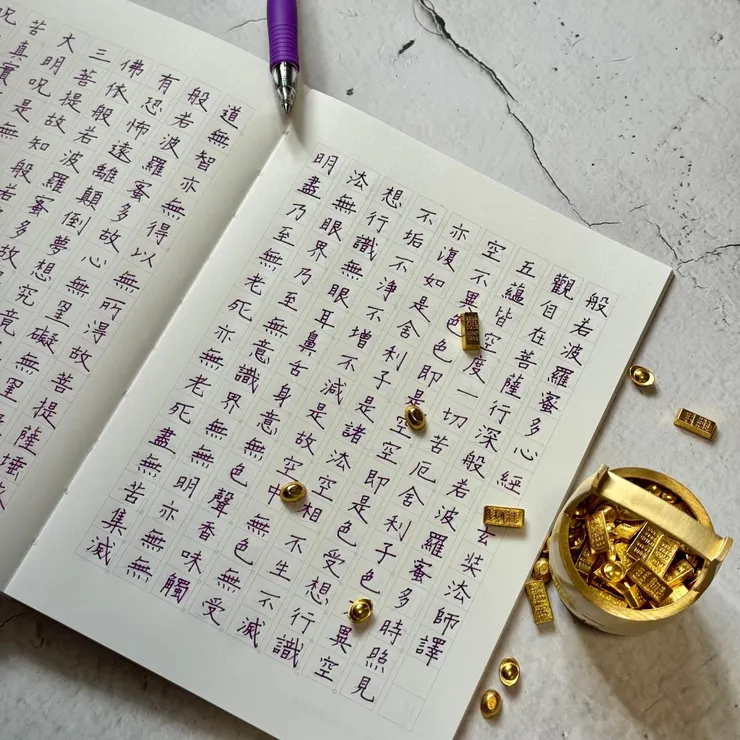 般若波羅蜜多心經 玄奘法師譯
觀自在菩薩行深般若波羅蜜多時照見
五蘊皆空度一切苦厄舍利子色異空
空不異色色即是空空即是色受想行識
亦復如是舍利子是諸法空相不生不滅
不垢不淨不增不減是故空中無色無受
想行識無眼耳鼻舌身意無色聲香味觸
法無眼界乃至無意識界無無明亦無無
明盡乃至無老死亦無老死盡無苦集滅
道無智亦無得以無所得故菩提薩埵依
般若波羅蜜多故心無罣礙無罣
有恐怖遠離顛倒夢想究竟
佛依般若波羅蜜多故
三菩提故知般若
大明呪是無
苦真實
呪